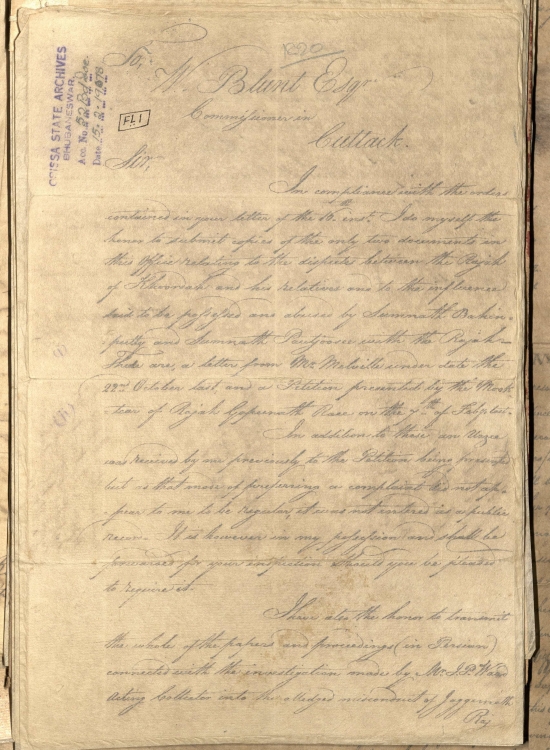 1290
ORISSA STATE ARCHIVES
BHUBANESWAR
Acc. No.
Date 15.2.1978
FL1
To,
W Blunt Esqr.
Commissioner in
Cuttack.
Sir,
In compliance with the orders
contained in your letter of the inst. I do myself the
honor to submit copies of the only two documents in
this Office relating to the disputes between the Rajah
of and his relatives and to the influence
said to be possessed and abused by
and with the Rajah
These are, a letter from Mr. Melville under date the
22nd October last, and a Petition presented by the Mook
tear of Rajah on the 7th of
In addition to these an Urzee
was received by me previously to the Petition being presented
but as that mode of preferring a complaint did not ap-
-pear to me to be regular, it was not entered as a public
It is however in my possession and shall be
forwarded for your inspection should you be pleased
to require it.
I have also the honor to transmit
the whole of the papers and proceedings (in Persian)
connected with the investigation made by Mr. J.P. Ward
Acting Collector into the alledged misconduct of Juggernath
Raj